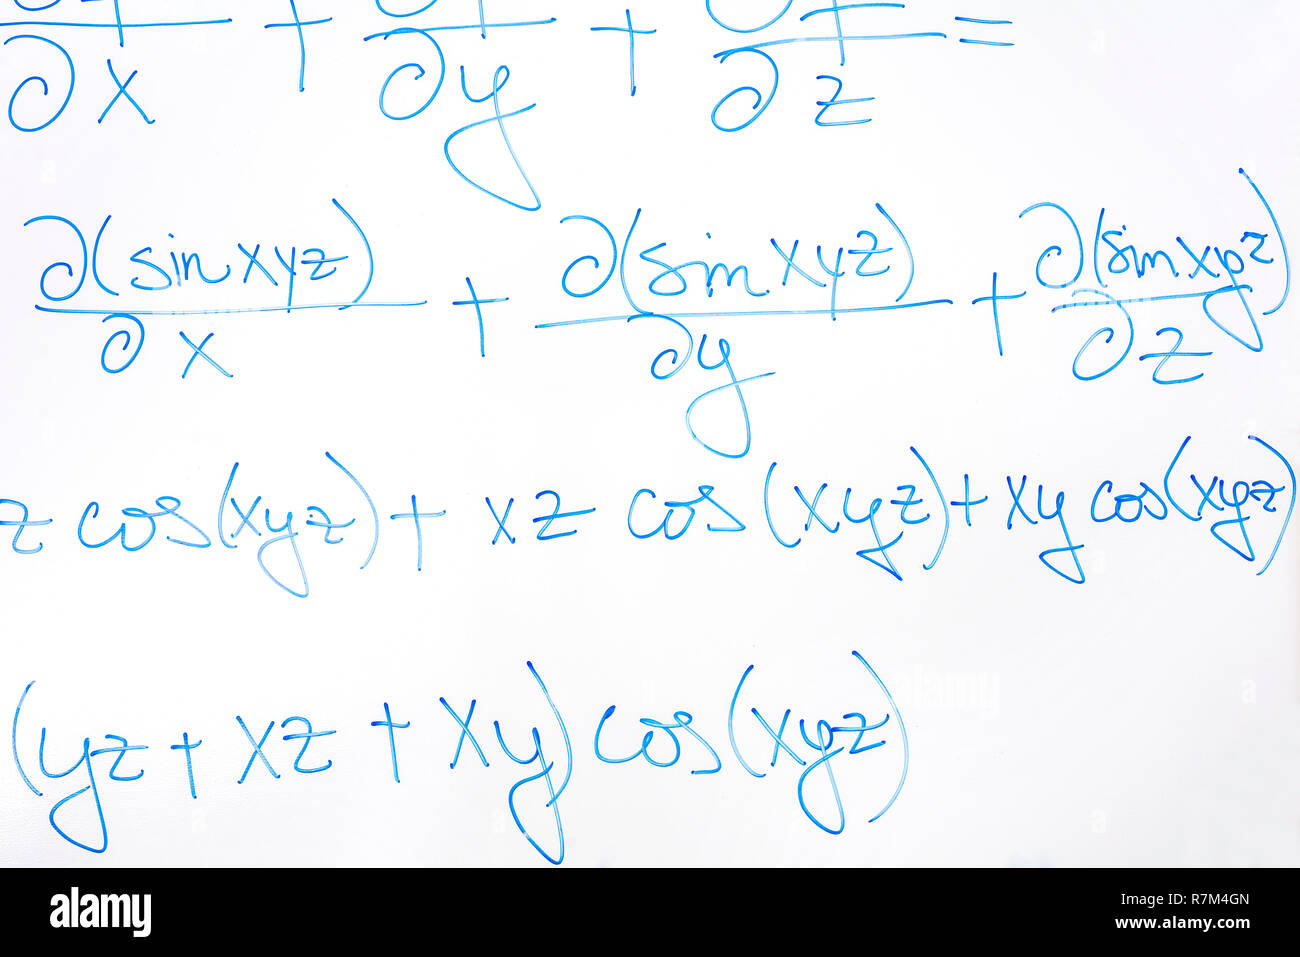 ∂f/∂x + ∂f/∂y + ∂f/∂z =
∂(sin xyz)/∂x + ∂(sin xyz)/∂y + ∂(sin xyz)/∂z
z cos(xyz) + xz cos(xyz) + xy cos(xyz)
(yz + xz + xy) cos(xyz)
alamy
Image ID: R7M4GN
www.alamy.com